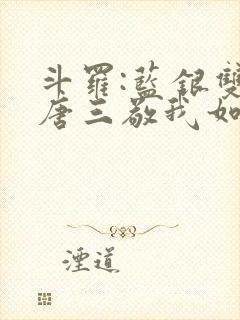 斗羅:藍銀雙
唐三敬我如
湮道